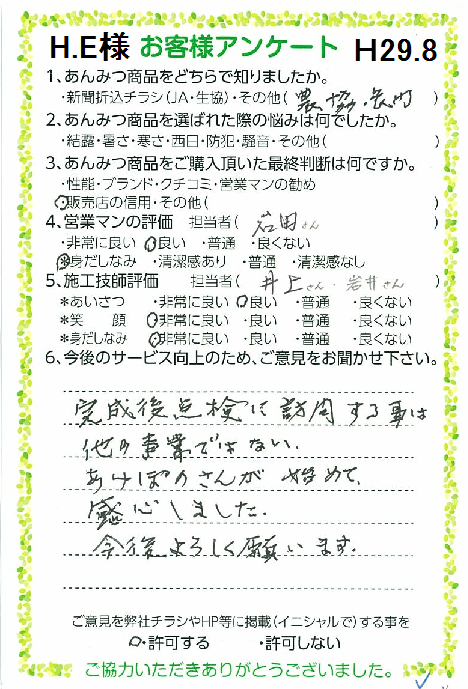 H.E様 お客様アンケート H29.8
1、あんみつ商品をどちらで知りましたか。
・新聞折込チラシ(JA・生協)・その他( 農協・長町 )
2、あんみつ商品を選ばれた際の悩みは何でしたか。
・結露・暑さ・寒さ・西日・防犯・騒音・その他( )
3、あんみつ商品をご購入頂いた最終判断は何ですか。
・性能・ブランド・クチコミ・営業マンの勧め
・販売店の信用・その他( )
4、営業マンの評価 担当者( 岩田さん )
・非常に良い ・良い ・普通 ・良くない
*身だしなみ ・清潔感あり ・普通 ・清潔感なし
5、施工技師評価 担当者( 井上さん・岩井さん )
*あいさつ ・非常に良い ・良い ・普通 ・良くない
*笑 顔 ・非常に良い ・良い ・普通 ・良くない
*身だしなみ ・非常に良い ・良い ・普通 ・良くない
6、今後のサービス向上のため、ご意見をお聞かせ下さい。
完成後点検に訪問する事は
他の事業ではない.
あけぼのさんが 始めて.
感心しました.
今後よろしく願います.
ご意見を弊社チラシやHP等に掲載(イニシャルで)する事を
・許可する ・許可しない
ご協力いただきありがとうございました。